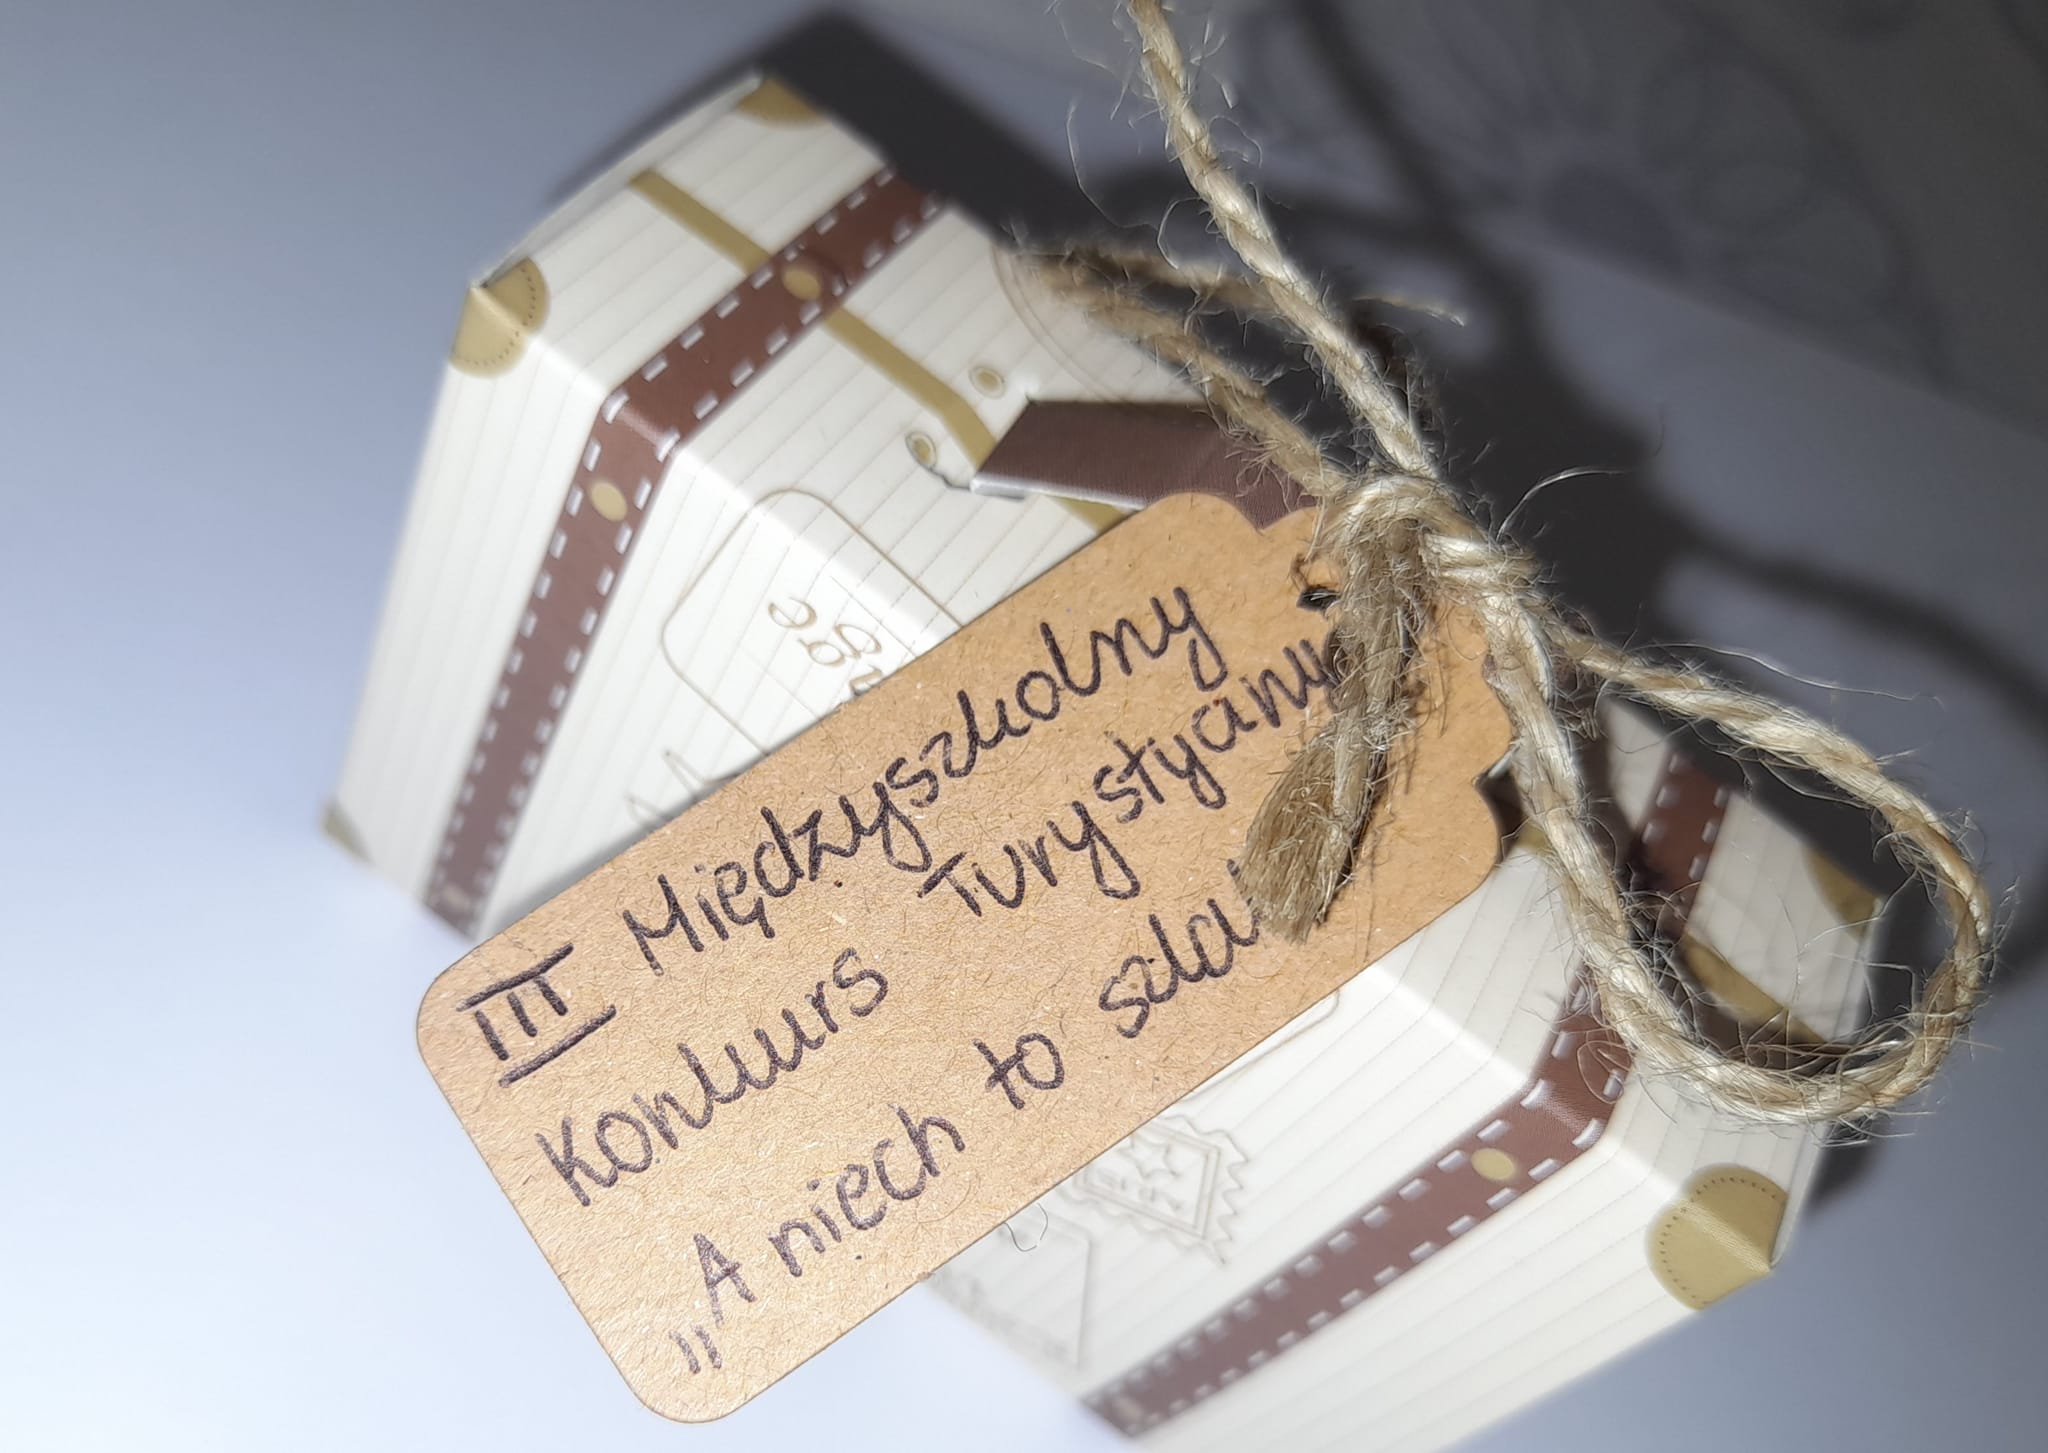 III Międzyszkolny
Konkurs Turystyczny
„A niech to szla